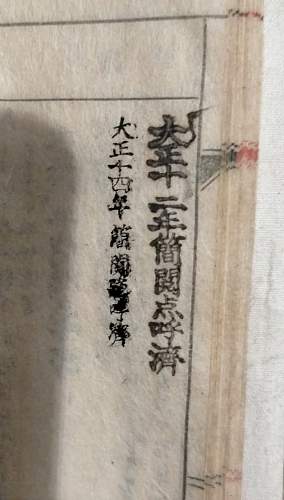 大正十二年簡閲点呼濟
大正十四年簡閲点呼濟